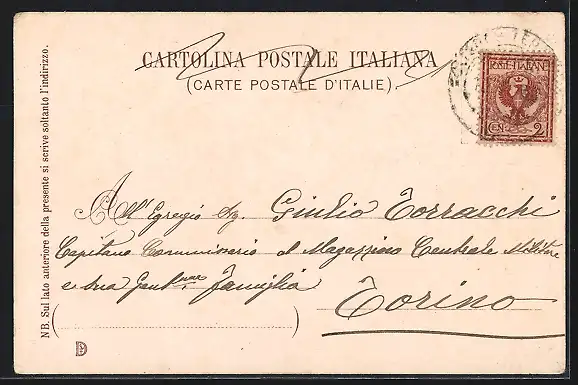 CARTOLINA POSTALE ITALIANA
(CARTE POSTALE D'ITALIE).
POSTE ITALIANE
CEN. 2
NB. Sul lato anteriore della presente si scrive soltanto l'indirizzo.
All'Egregio Sig. Giulio Torracchi
Capitano Commissario al Magazzino Centrale Militare
e sua Gentma Famiglia
Torino